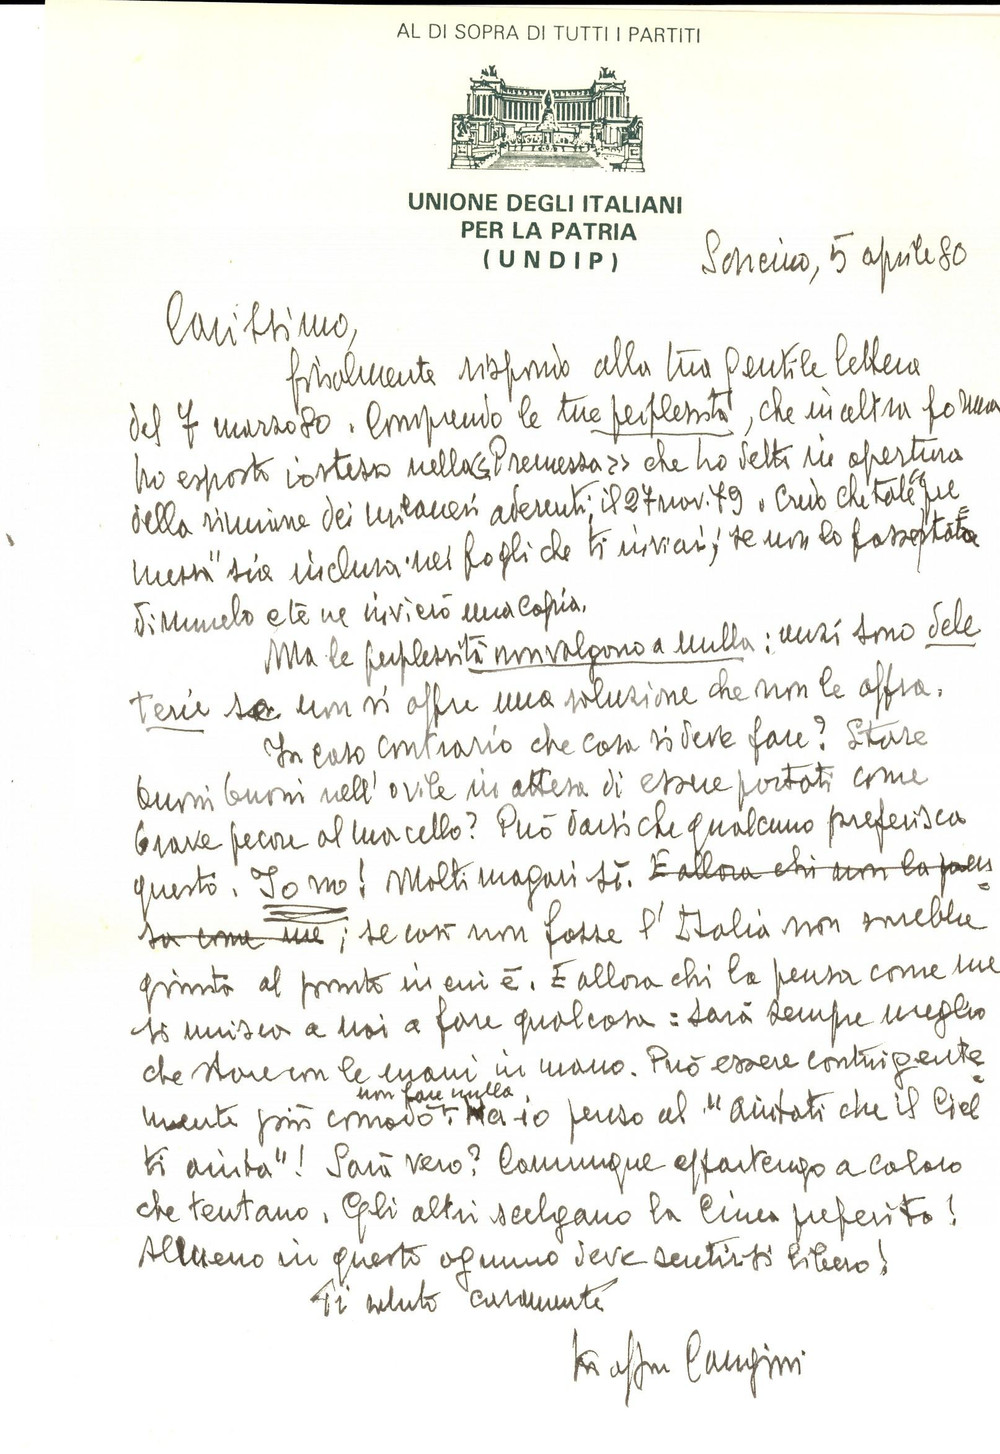 AL DI SOPRA DI TUTTI I PARTITI
UNIONE DEGLI ITALIANI
PER LA PATRIA
(UNDIP)
Soncino, 5 aprile 80
Carissimo,
finalmente rispondo alla tua gentile lettera
del 7 marzo 80. Comprendo le tue perplessità, che in altra forma
ho esposto io stesso nella <<Premessa>> che ho detto in apertura
della riunione dei milanesi aderenti, il 27 nov. 79. Credo che tale "pre
messa" sia inclusa nei fogli che ti inviai; se non lo fosse stata
dimmelo e te ne invierò una copia.
Ma le perplessità non valgono a nulla: anzi sono dele
terie se non si offre una soluzione che non le offra.
In caso contrario che cosa si deve fare? Stare
buoni buoni nell'ovile in attesa di essere portati come
brave pecore al macello? Può darsi che qualcuno preferisca
questo. Io no! Molti magari sì. E allora chi non la pen
sa come me; se così non fosse l'Italia non sarebbe
giunta al punto in cui è. E allora chi la pensa come me
si unisca a noi a fare qualcosa: sarà sempre meglio
che stare con le mani in mano. Può essere contingente
non fare nulla
mente più comodo. Ma io penso al "aiutati che il Ciel
ti aiuta"! Sarà vero? Comunque appartengo a coloro
che tentano. Gli altri scelgano la linea preferita!
Almeno in questo ognuno deve sentirsi libero!
Ti saluto caramente
Cangini